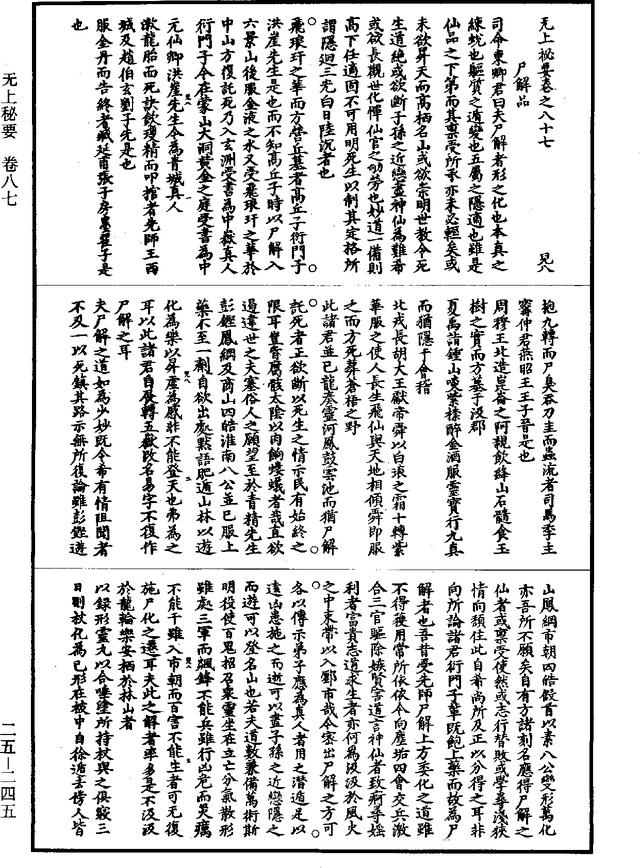 无上秘要卷之八十七
尸解品
司命東卿君曰夫尸解者形之化也本真之
練蛻也軀質之遁變也五屬之隱適也雖是
仙品之下第而其稟受所承亦未必輕矣或
未欲昇天而高栖名山或欲崇明世教令死
生道絕或欲斷子孫之近戀盡神仙為難希
或欲長觀世化憚仙官之劬勞也妙道一備則
高下任適固不可用明死生以制其定格所
謂隱迴三光白日陸沉者也
飛琅玕之華而方營丘墓者高丘子衍門子
洪崖先生是也而不知高丘子時以尸解入
六景山後服金液之水又受飛琅玕之華於
中山方復託死乃入玄洲受書為中嶽真人
衍門子今在蒙山大洞黃金之庭受書為中
元仙卿洪崖先生今為青城真人
漱龍胎而死訣飲瓊精而叩棺者先師王西
城及趙伯玄劉子先是也
服金丹而告終者臧延甫張子房墨翟子是
也
抱九轉而尸臭吞刀圭而蟲流者司馬季主
甯仲君燕昭王王子晉是也
周穆王北造崑崙之阿親飲絳山石髓食玉
樹之實而方墓乎汲郡
夏禹詣鍾山啖紫㮈醉金酒服靈寶行九真
而猶隱于會稽
北戎長胡大王獻帝舜以白琅之霜十轉紫
華服之使人長生飛仙與天地相傾舜即服
之而方死葬蒼梧之野
此諸君並已龍奏靈河鳳鼓雲池而猶尸解
託死者正欲斷以死生之情示民有始終之
限耳豈肯腐骸太陰以肉餉螻蟻者哉直欲
過違世之夫塞俗人之願望至於青精先生
彭鏗鳳綱及商山四皓淮南八公並已服上
藥不至一劑自欲出處默語肥遁山林以遊
化為樂以昇虛為慼非不能登天也弗為之
耳以此諸君自展轉五嶽改名易字不復作
尸解之耳
夫尸解之道如為少妙既令希有情阻聞者
不及一以死鎮其路示無所復論雖彭鏗遊
山鳳綱市朝四皓假首以素八公變形萬化
亦吾所不願矣自有方諸刻名應得尸解之
仙者或稟受使然或志行替敗或學尋淺狹
情向頹住此自希尚所及正以分得之耳非
向所論諸君衍門子輩既飽上藥而故為尸
解者也吾昔受先師尸解上方委化之道雖
不得獲用常所依依今向塵垢四會交兵激
合三官驅除嫉賢害道言神仙者致痾尋婬
利者富貴志道求生者亦何為汲汲於風火
之中束帶以入鄽市哉今密出尸解之方可
各以傳示弟子應為真人者用之潛遁足以
遠凶患施之而遊可以盡子孫之近戀隱之
而遊可以登名山也若夫道數兼備萬術斯
明役使百鬼招召衆靈坐在立亡分氣散形
雖處三軍而飆鋒不能兵雖行凶危而災癘
不能干雖入市朝而百害不能生者可无復
施尸化之遠耳夫此之解者率多是不汲汲
於龍輪樂安栖於林山者
以錄形靈丸以合唾塗所持杖與之俱寢三
日則杖化為己形在被中自徐遁去傍人皆
无上秘要 卷八七
二五—二四五